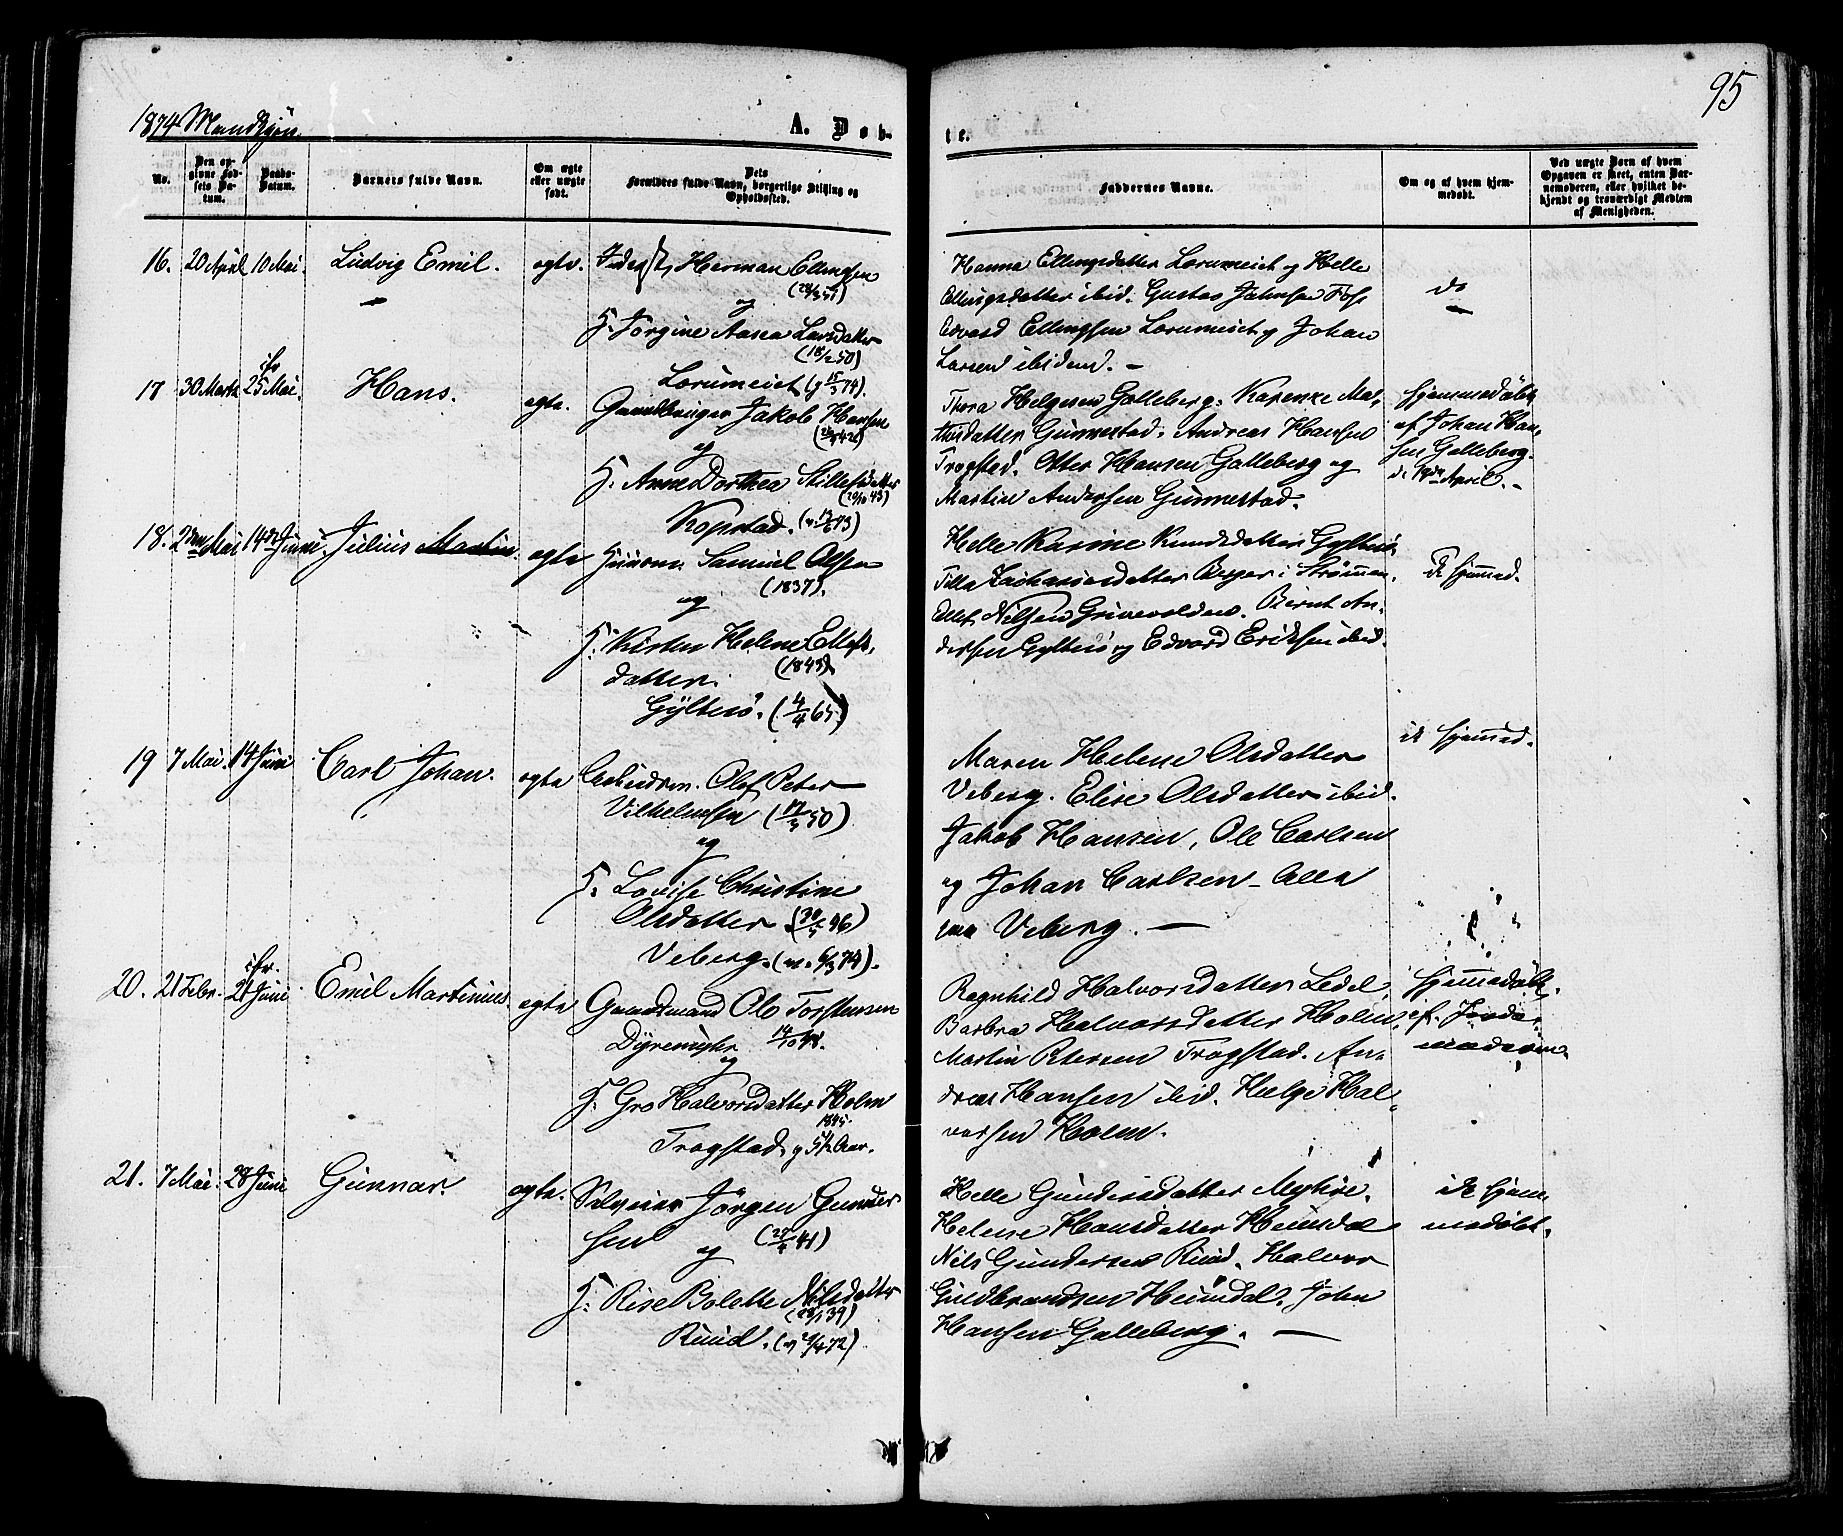 95
1874 Mandkjøn.
A. Døb-
te.
No.
Den op-
givne Fød-
sels Da-
tum.
Daabs-
Datum.
Barnets fulde Navn.
Om ægte
eller uægte
født.
Dets
Forældres fulde Navn, borgerlige Stilling og
Opholdssted.
Faddernes Navne.
Om og af hvem hjem-
medøbt.
Ved uægte Børn af hvem
Opgaven er skeet, enten Bar-
nemoderen, eller hvilket be-
kjendt og troværdigt Medlem
af Menigheden.
16. 20 April 10 Mai. Ludvig Emil. ægte. Herman Ellingsen
og
H. Jørgine Aasea Larsdatter
(18/2 50)
Hanna Ellingsdatter Lorumeiet og Helle
Ellingsdatter ibid. Gustav Foss
Edvard Ellingsen Lorumeiet og Johan
Larsen ibidem. —
do
17 30 Marts 25 Mai. Hans. ægte. Lorumeiet (g 15/3 74).
Gaardbruger Jakob Hansen
og
H. Anne Dorthea
Kopstad.
Thora Helgesen Galleberg. Karenke Ma-
thisdatter Gunnestad. Andreas Hansen
Trogstad. Otter Hansen Galleberg og
Martin Andersen Gunnestad.
hjemmedøbt
af Johan Han-
sen Galleberg
d. April. -
18. 2den Mai 14de Juni. Julius Martin. ægte Huusm. Samuel Olsen
(1837).
og
H. Kirsten Helene Ellefs-
datter.
Gyltesø. (4/4 65)
Helle Karine Knudsdatter
Tilla Zachariasdatter Berger i Strømmen.
Ellef Nilsen Grinevolden. Bernt An-
dersen og Edvard Eriksen ibid.
ik hjemmed.
19 7 Mai. 14 Juni Carl Johan. ægte Arbeidsm. Olof Peter
Vilhelmsen
og
H. Lovise Christine
Olsdatter.
Veberg.
Maren Helene Olsdatter
Veberg. Elise Olsdatter ibid.
Jakob Hansen, Ole Carlsen
og Johan Carlsen – Alle
paa Veberg. —
ik hjemmed.
20. 21 Febr. 21 Juni Emil Martinius ægte Gaardmand Ole Torstensen
14/10 48.
og
H. Gro Halvorsdatter Holm
1845.
Trogstad.
Ragnhild Halvorsdatter Ledel,
Barbra Halvorsdatter Holm,
Martin Petersen Trogstad. An-
dreas Hansen ibid. Helge Hal-
vorsen Holm.
hjemmedøbt
af Jorde-
moderen.
21. 7 Mai. 28 Juni Gunnar. ægte. Selveier Jørgen Gunder-
sen
og
H. Bolette Nilsdatter
Ruud.
Helle Gundersdatter
Helene Hansdatter Heimdal
Nils Gundersen Ruud. Halvor
Guldbrandsen Heimdal. John
Hansen Galleberg. —
ik hjem-
medøbt.